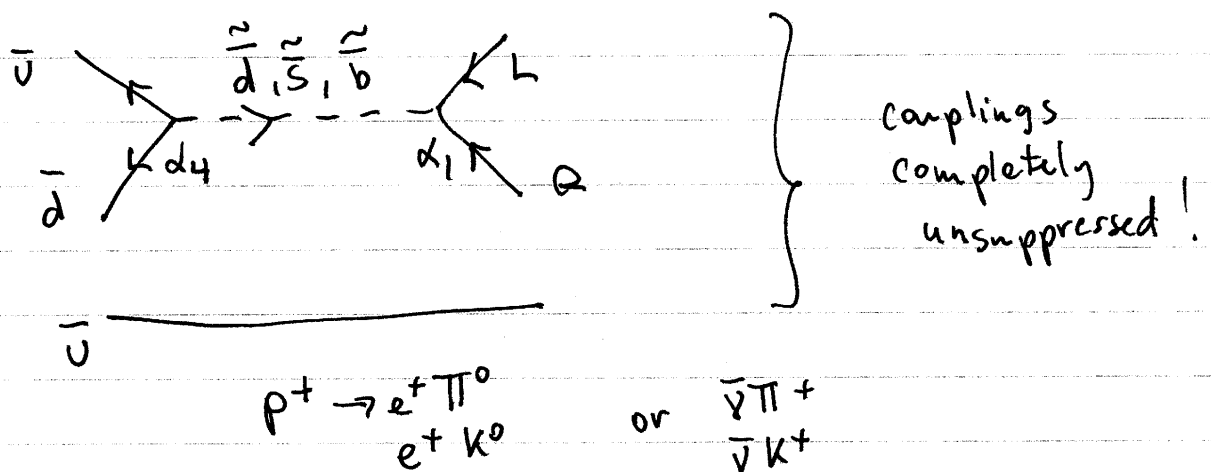 ū d̃, s̃, b̃ L
d̄ α4 α1 Q
couplings
completely
unsuppressed!
ū
p⁺ → e⁺ π⁰ or ν̄ π⁺
e⁺ K⁰ ν̄ K⁺